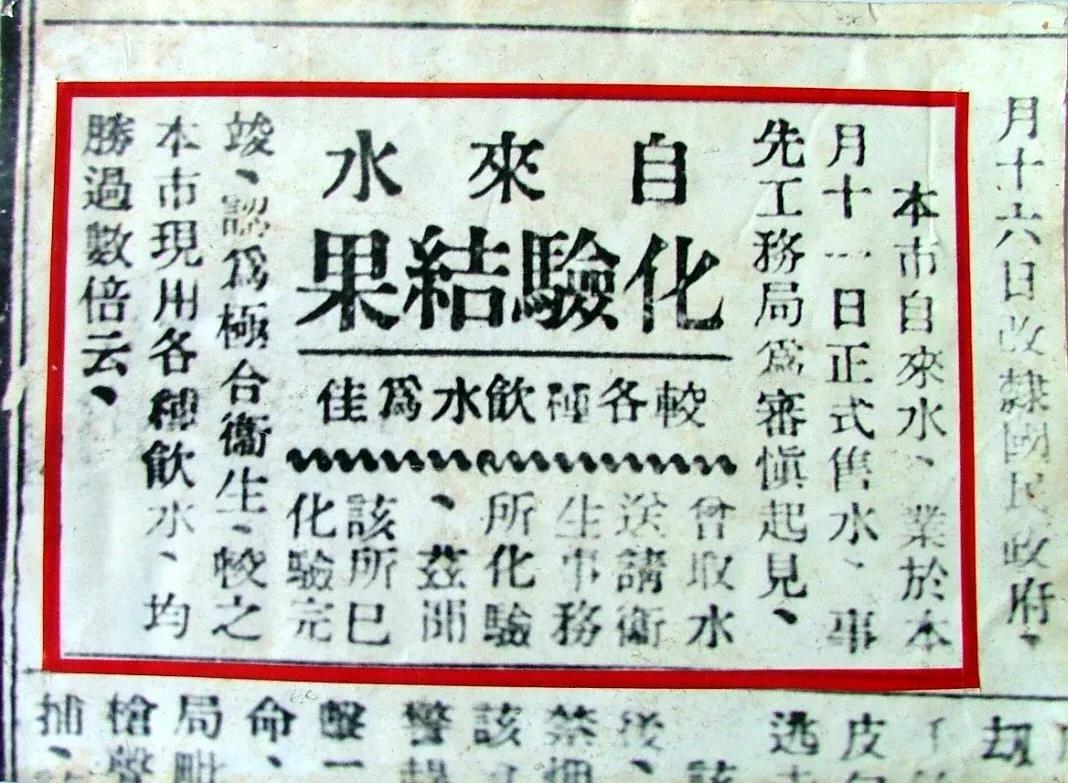 月十六日改隸國民政府、
自來水
化驗結果
較各種飲水爲佳
本市自來水、業於本
月十一日正式售水、事
先工務局爲審愼起見、
曾取水
送請衞
生事務
所化驗
、茲聞
該所已
化驗完
竣、認爲極合衞生、較之
本市現用各種飲水、均
勝過數倍云、
刧
皮
逃
該
後、
禁押
該
警
擊一
命、
局毗
槍聲
捕、